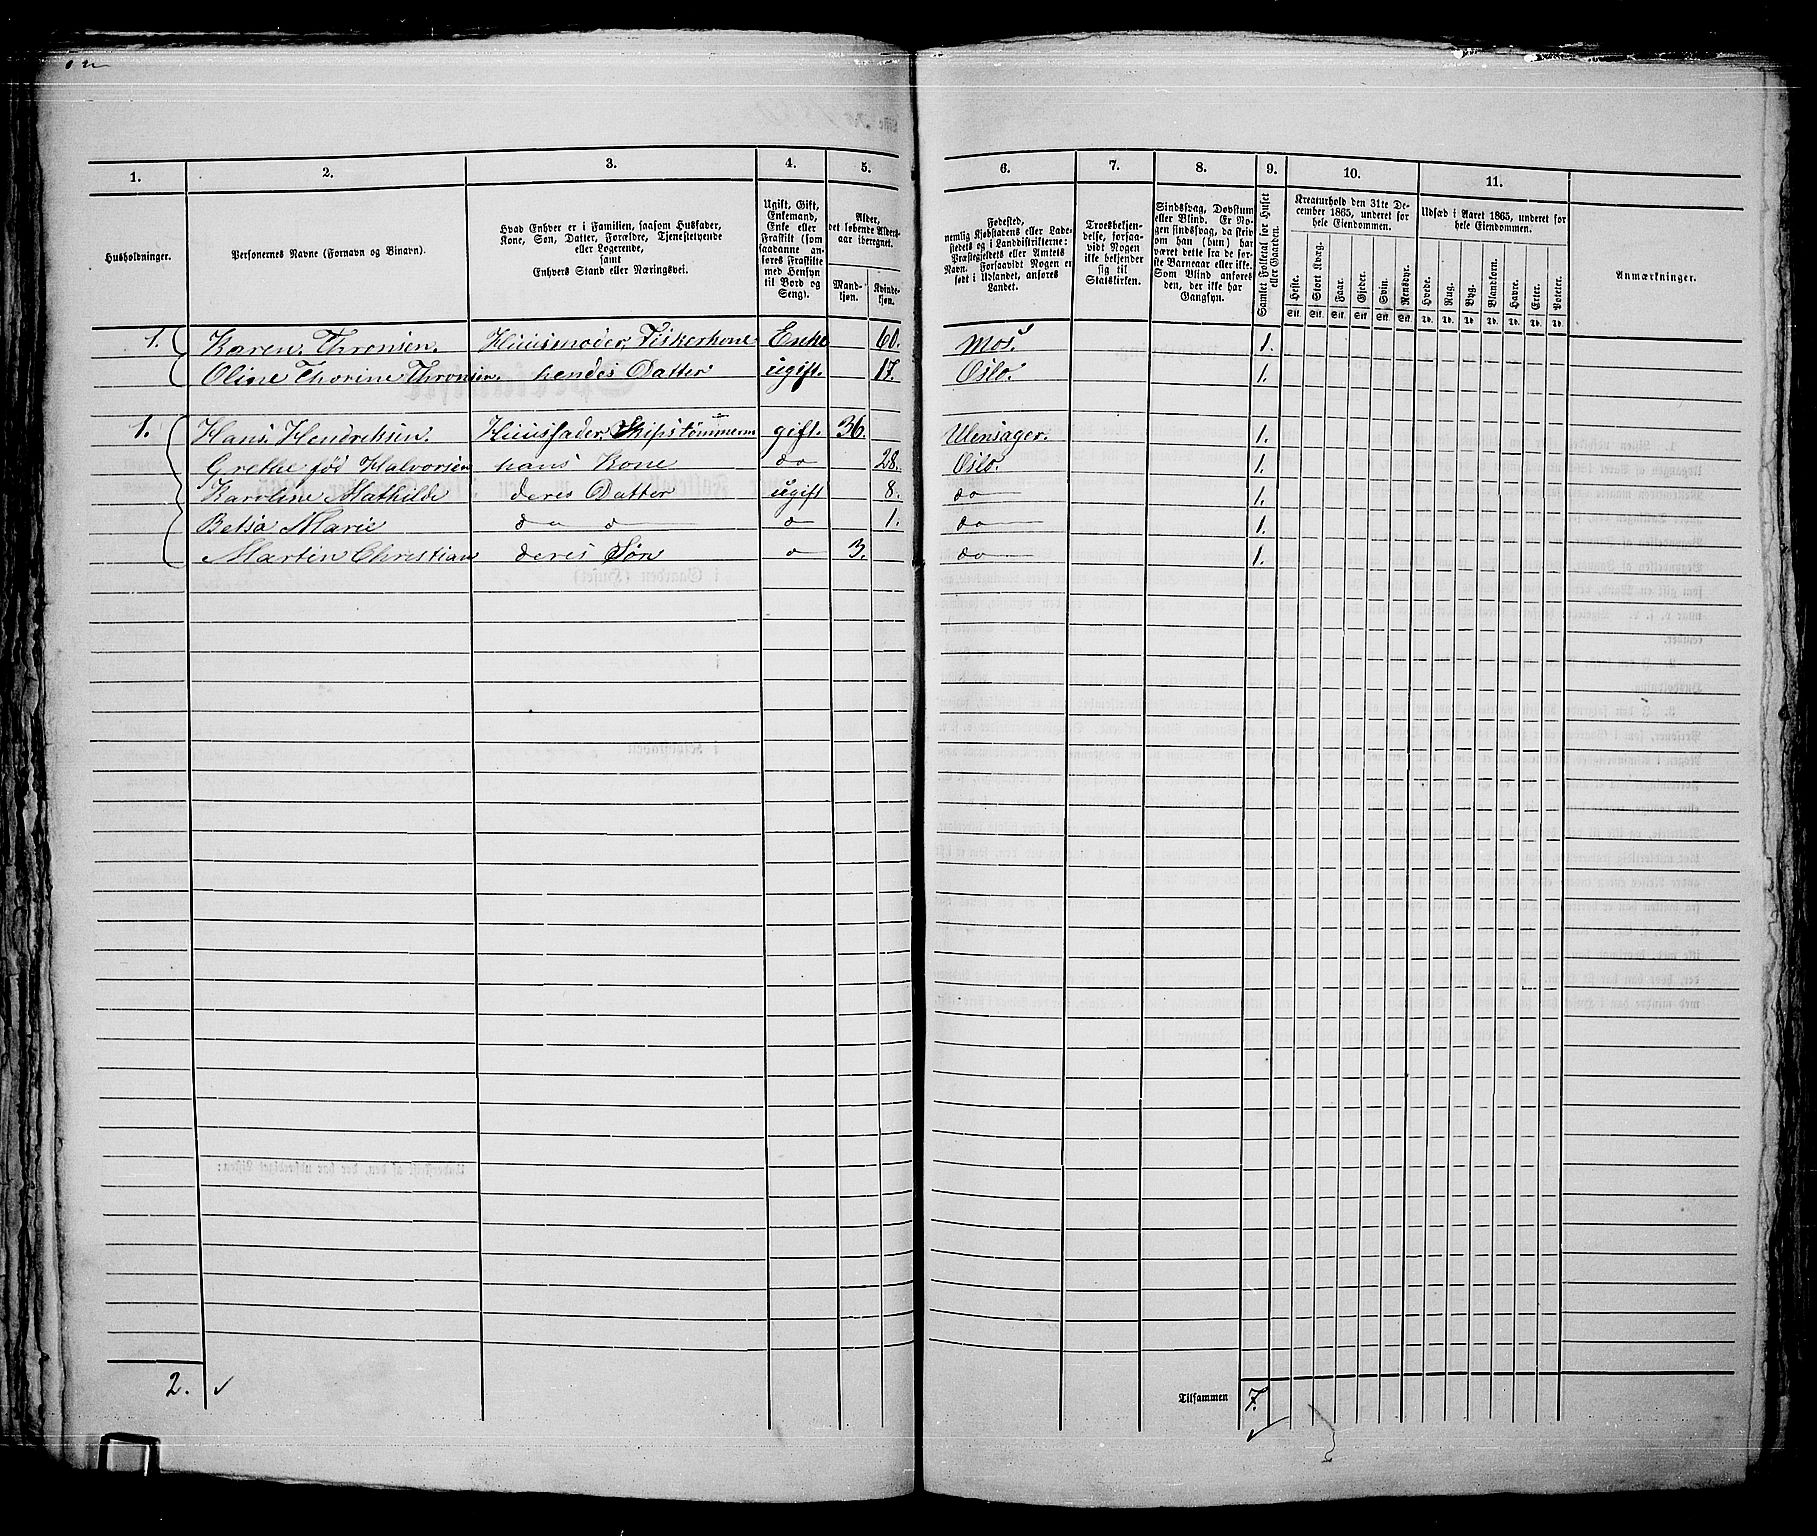 1. 2. 3. 4. 5. 6. 7. 8. 9. 10. 11.
Husholdninger.
Personernes Navne (Fornavn og Binavn).
Hvad Enhver er i Familien, saasom Husfader,
Kone, Søn, Datter, Forældre, Tjenestetyende
eller Logerende,
samt
Enhvers Stand eller Næringsvei.
Ugift, Gift,
Enkemand,
Enke eller
Fraskilt (som
saadanne an-
føres Fraskilte
med Hensyn
til Bord og
Seng).
Alder,
det løbende Alders-
aar iberegnet.
Mand-
kjøn.
Kvinde-
kjøn.
Fødested,
nemlig Kjøbstadens eller Lade-
stedets og i Landdistrikterne:
Præstegjeldets eller Amtets
Navn. Forsaavidt Nogen er
født i Udlandet, anføres
Landet.
Troesbekjen-
delse, forsaa-
vidt Nogen
ikke bekjender
sig til
Statskirken.
Sindssvag, Døvstum
eller Blind. Er No-
gen sindssvag, da skriv
om han (hun) har
været dette fra de før-
ste Barneaar eller ikke.
Som Blind anføres
den, der ikke har
Gangsyn.
Samlet Folketal for Huset
eller Gaarden.
Kreaturhold den 31te De-
cember 1865, underet for
hele Eiendommen.
Heste. Stort Kvæg. Faar. Gjeder. Svin. Rensdyr.
Stk. Stk. Stk. Stk. Stk. Stk.
Udsæd i Aaret 1865, underet for
hele Eiendommen.
Hvede. Rug. Byg. Blandkorn. Havre. Erter. Poteter.
Td. Td. Td. Td. Td. Td. Td.
Anmærkninger.
1. Karen Thronsen. Huusmoder Fiskerkone Enke 60. Mos. 1.
Oline Thorine Thronsen. hendes Datter ugift. 17. Oslo. 1.
1. Hans Hendriksen. Huusfader Skipstømmerm gift. 36. Ulensager. 1.
Grethe fød Halvorsen hans Kone do 28. Oslo. 1.
Karoline Mathilde deres Datter ugift 8. do 1.
Betsa Marie do d o 1. do 1.
Martin Christian deres Søn o 3. do 1.
2. Tilsammen 7.